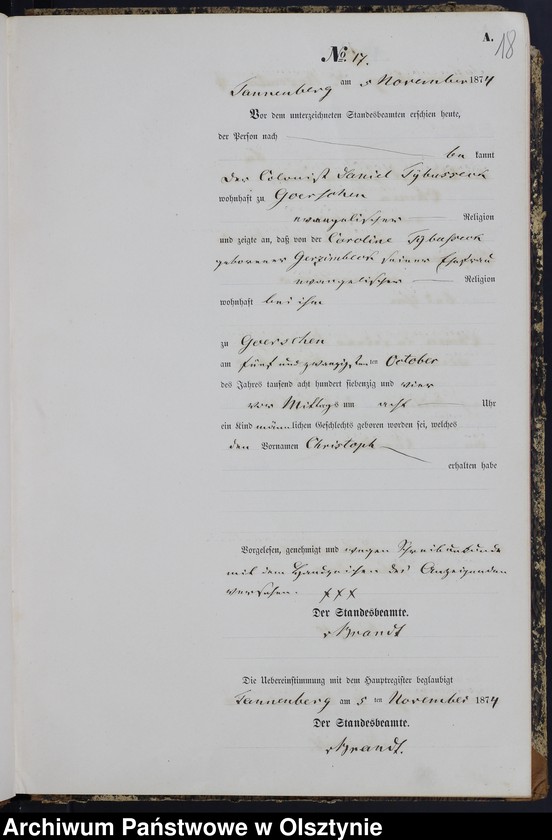 A.
18
No 17.
Tannenberg am 5 November 1874
Vor dem unterzeichneten Standesbeamten erschien heute,
der Person nach
be kannt
der Colonist Daniel Tybusseck
wohnhaft zu Goerschen
evangelischer Religion
und zeigte an, daß von der Caroline Tybusseck
geborener seiner Ehefrau
evangelischer Religion
wohnhaft bei ihm
zu Goerschen
am fünf und zwanzigsten ten October
des Jahres tausend acht hundert siebenzig und vier
vor Mittags um acht Uhr
ein Kind männlichen Geschlechts geboren worden sei, welches
den Vornamen Christoph
erhalten habe
Vorgelesen, genehmigt und wegen Schreibunkunde
mit dem Handzeichen des Anzeigenden
versehen. xxx
Der Standesbeamte.
vBrandt
Die Uebereinstimmung mit dem Hauptregister beglaubigt
Tannenberg am 5 ten November 1874
Der Standesbeamte.
vBrandt.
Archiwum Państwowe w Olsztynie